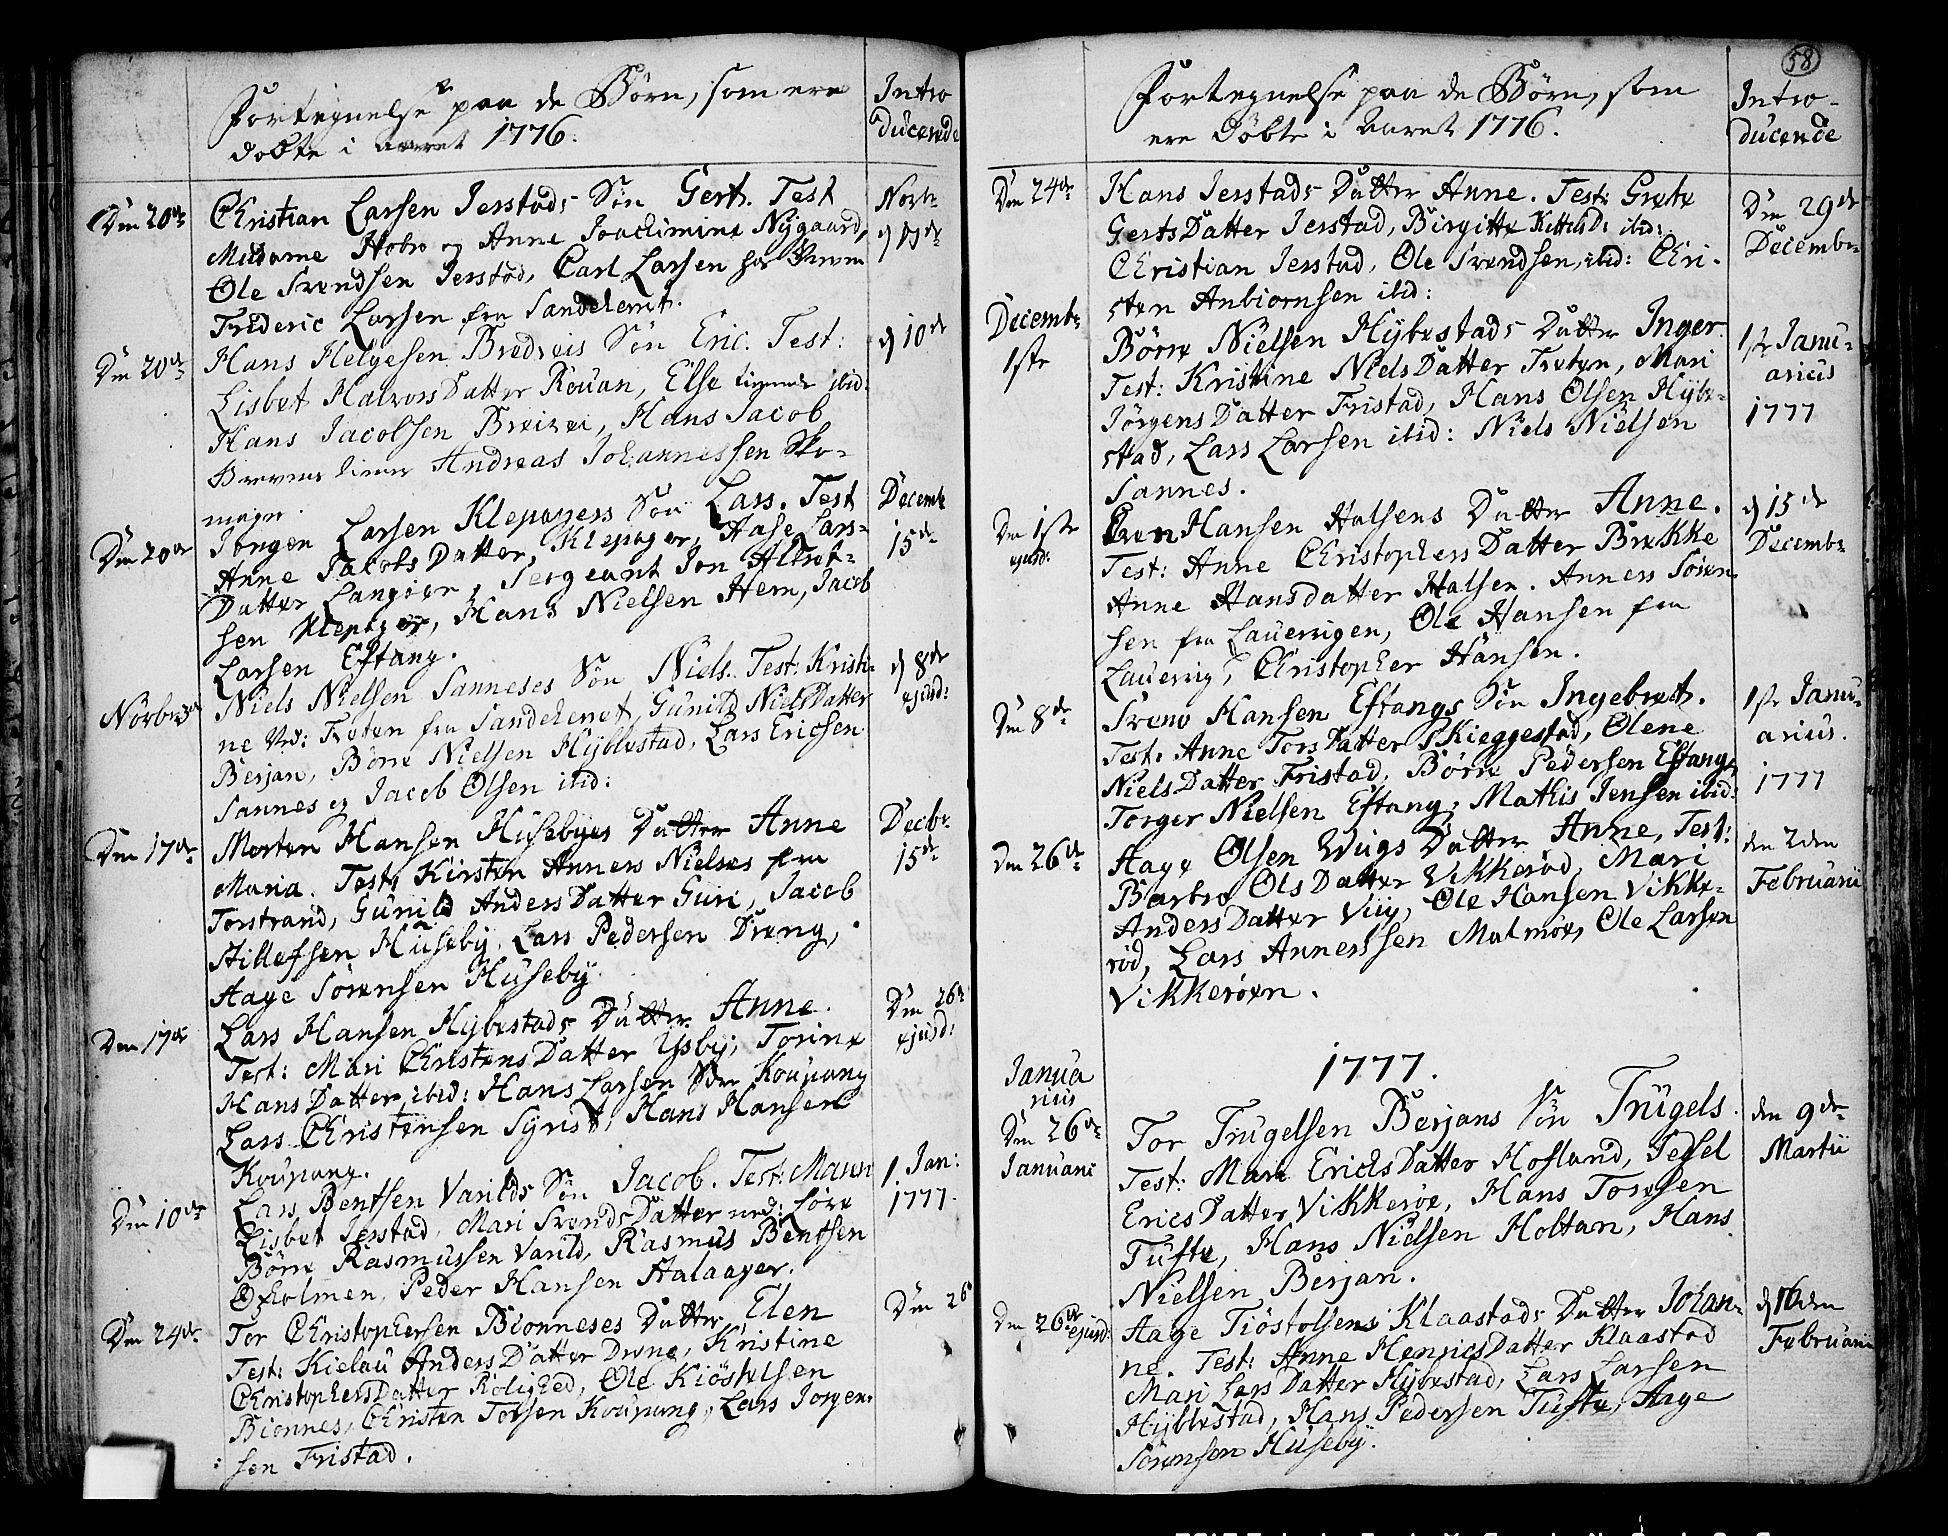 Fortegnelse paa de Børn, som ere
døbte i Aaret 1776.
Intro
ducende
Den 20de
Christian Larsen Jerstads Søn Gert. Test
Madame Hobro og Anne Joachimine Nygaard,
Ole Svendsen Jerstad, Carl Larsen
Frideric Larsen fra Sandeherret.
Novbr
d 17de
Den 20de
Hans Helgesen Bredveis Søn Eric. Test:
Lisbet HalvorsDatter Rouan, Else ibid:
Hans Jacobsen Breivei, Hans Jacob
Andreas Johannessen Sko-
mager.
d 10de
Den 20de
Jørgen Larsen Klepagers Søn Lars. Test
Anne JacobsDatter Klepager, Aase Lars-
Datter Langøen, Sergeant Jon Altret-
sen Klepager, Hans Nielsen Hem, Jacob
Larsen Eftang.
Decemb
15de
Novbr
Niels Nielsen Sanneses Søn Niels. Test: Kristi-
ne Treten fra Sandeherret, Gunild NielsDatter
Berjan, Børre Nielsen Hyblestad, Lars Ericsen
Sannes og Jacob Olsen ibid:
d 8de
ejusd:
Den 17de
Morten Hansen Husebyes Datter Anne
Maria. Test: Kirsten Anners Nielses fra
Torstrand, Gunild AndersDatter Guri, Jacob
Hillefsen Huseby, Lars Pedersen Dreng,
Aage Sørensen Huseby.
Decbr
15de
Den 17de
Lars Hansen Hybestads Datter Anne.
Test: Mari ChristensDatter Ysby, Torine
HansDatter, ibid: Hans Larsen Koupang
Lars Christensen Syrist, Hans Hansen
Koupang.
Den 26de
ejusd:
Den 10de
Lars Bentsen Varilds Søn Jacob. Test: Mann
Lisbet Jerstad, Mari SvendsDatter ned: Løve
Børre Rasmussen Varild, Rasmus Bentsen
Oxholmen, Peder Hansen Halaager.
1 Jan:
1777.
Den 24de
Tor Christophersen Bionneses Datter Elen
Test: Kielau AndersDatter Drene, Kristine
ChristophersDatter Rolighed, Ole Kiøstelsen
Bionnes, Christen Torsen Koupang, Lars Jørgen-
sen Fristad.
Den 26
58
Fortegnelse paa de Børn, som
ere Døbte i Aaret 1776.
Intro-
ducende
Den 24de
Hans Jerstads Datter Anne. Test: Grete
GertsDatter Jerstad, Birgitte KittelsD: ibid:
Christian Jerstad, Ole Svendsen, ibid: Chri-
sten Anbiornsen ibid:
Den 29de
Decembr
Decembr
1ste
Børre Nielsen Hybestads Datter Inger
Test: Kristine NielsDatter Treten, Mari
JørgensDatter Fristad, Hans Olsen Hybe-
stad, Lars Larsen ibid: Niels Nielsen
Sannes.
1ste Janu-
arius
1777
Den 1ste
ejusd:
Even Hansen Halsens Datter Anne.
Test: Anne ChristophersDatter Brekke
Anne Hansdatter Halsen. Anners Søren-
sen fra Lauersigen, Ole Hansen fra
Lauersig, Christopher Hansen.
d 15de
Decembr
Den 8de
Svend Hansen Eftangs Søn Ingebret.
Test: Anne TorsDatter Skieggestad, Olene
NielsDatter Fristad, Børre Pedersen Eftang,
Torger Nielsen Eftang, Mathis Jensen ibid:
1ste Janu
arius.
1777
Den 26de
Aage Olsen Wiigs Datter Anne, Test:
Barbro OlsDatter Vikkerød, Mari
AndersDatter Viig, Ole Hansen Vikke-
rød, Lars Annerssen Malmøe, Ole Larsen
Vikkerøen.
den 2den
Februarii
1777.
Janua
rius
Den 26de
Januari
Tor Trugelsen Berjans Søn Trugels.
Test: Mari EricksDatter Hosland, Sessel
EricsDatter Vikkerøe, Hans Toresen
Tufte, Hans Nielsen Holtan, Hans
Nielsen Berjan.
den 9de
Martii
Den 26de
ejusd:
Aage Tiøstolsens Klaastads Datter Johan-
ne. Test: Anne HenricsDatter Klaastad
Mari LarsDatter Hybestad, Lars Larsen
Hyblestad, Hans Pedersen Tufte, Aage
Sørensen Huseby.
d 16den
Februarii